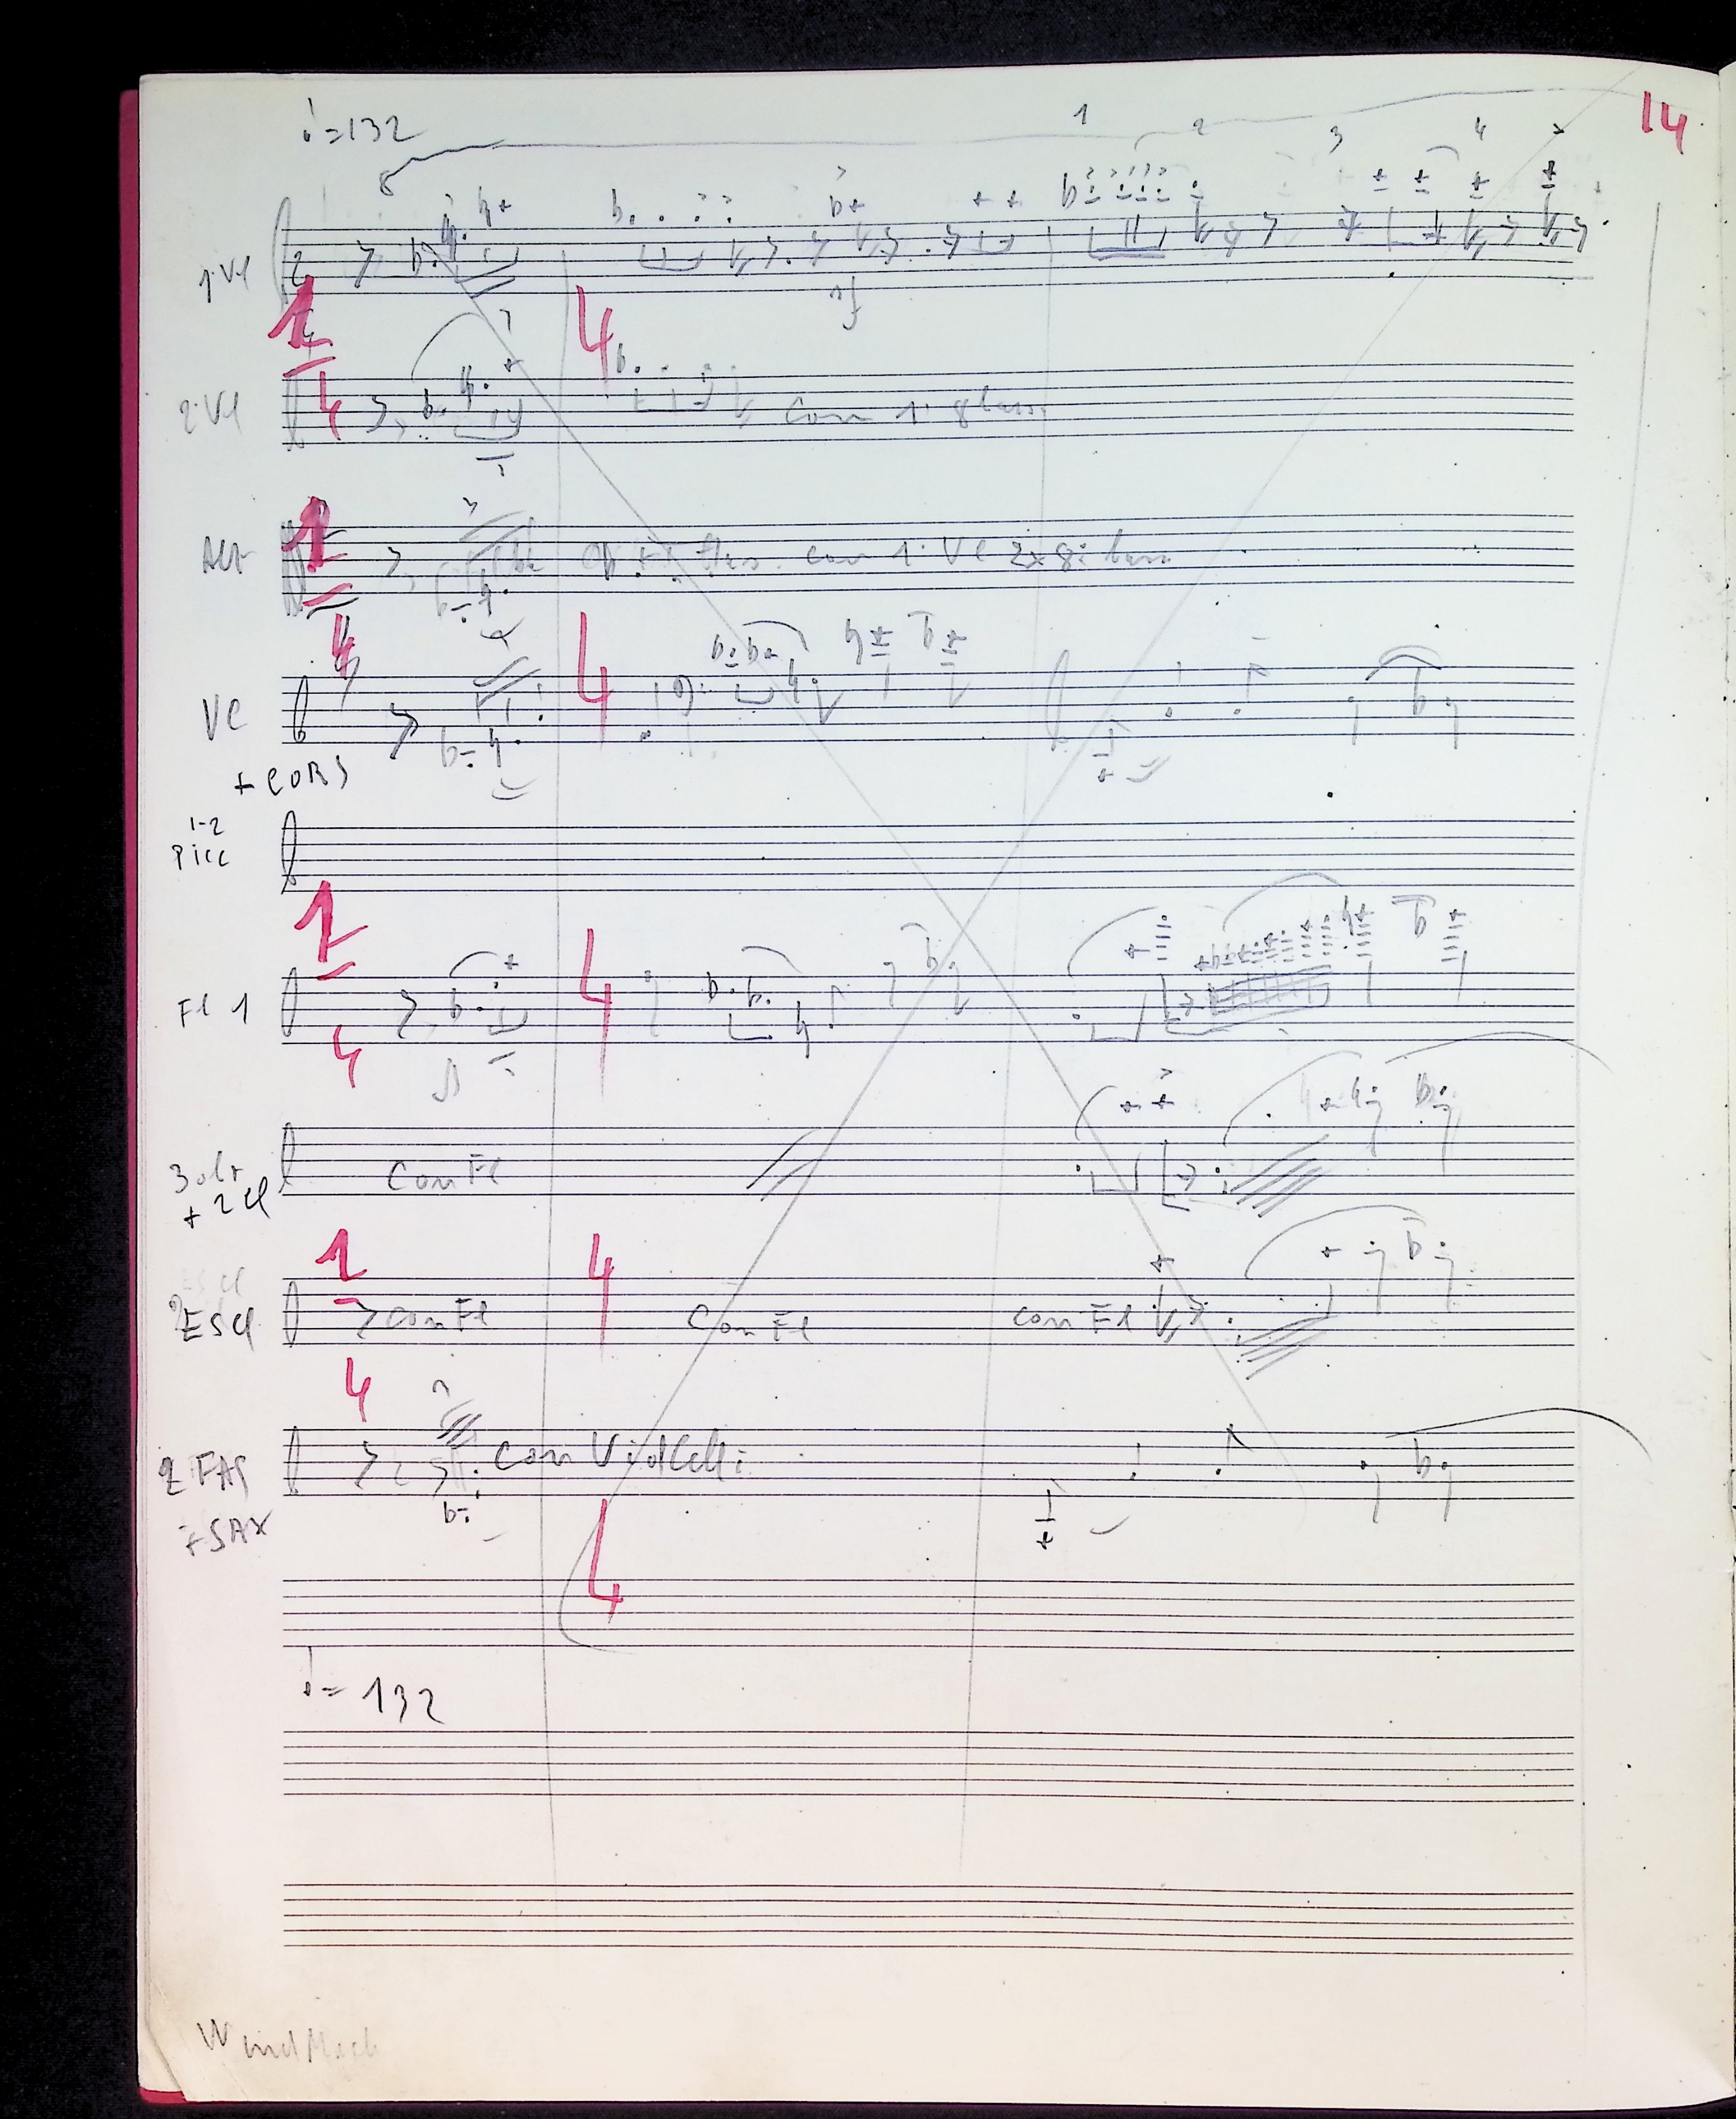 ♩=132
14
1 2 3 4
8
1. Vl
2
4
4
sf
2. Vl
con 1. 8 bass.
Alt
2
4
con 1. Vl 2x8: bass.
Vc
4
+ CORS
1-2
Picc
Fl 1
2
4
4
3 
+ 2 Cl
Con Fl
2 ES Cl
2
4
4
con Fl
Con Fl
con Fl
2 FAG
+ SAX
con Violcelli
4
♩= 132
Wind Mach